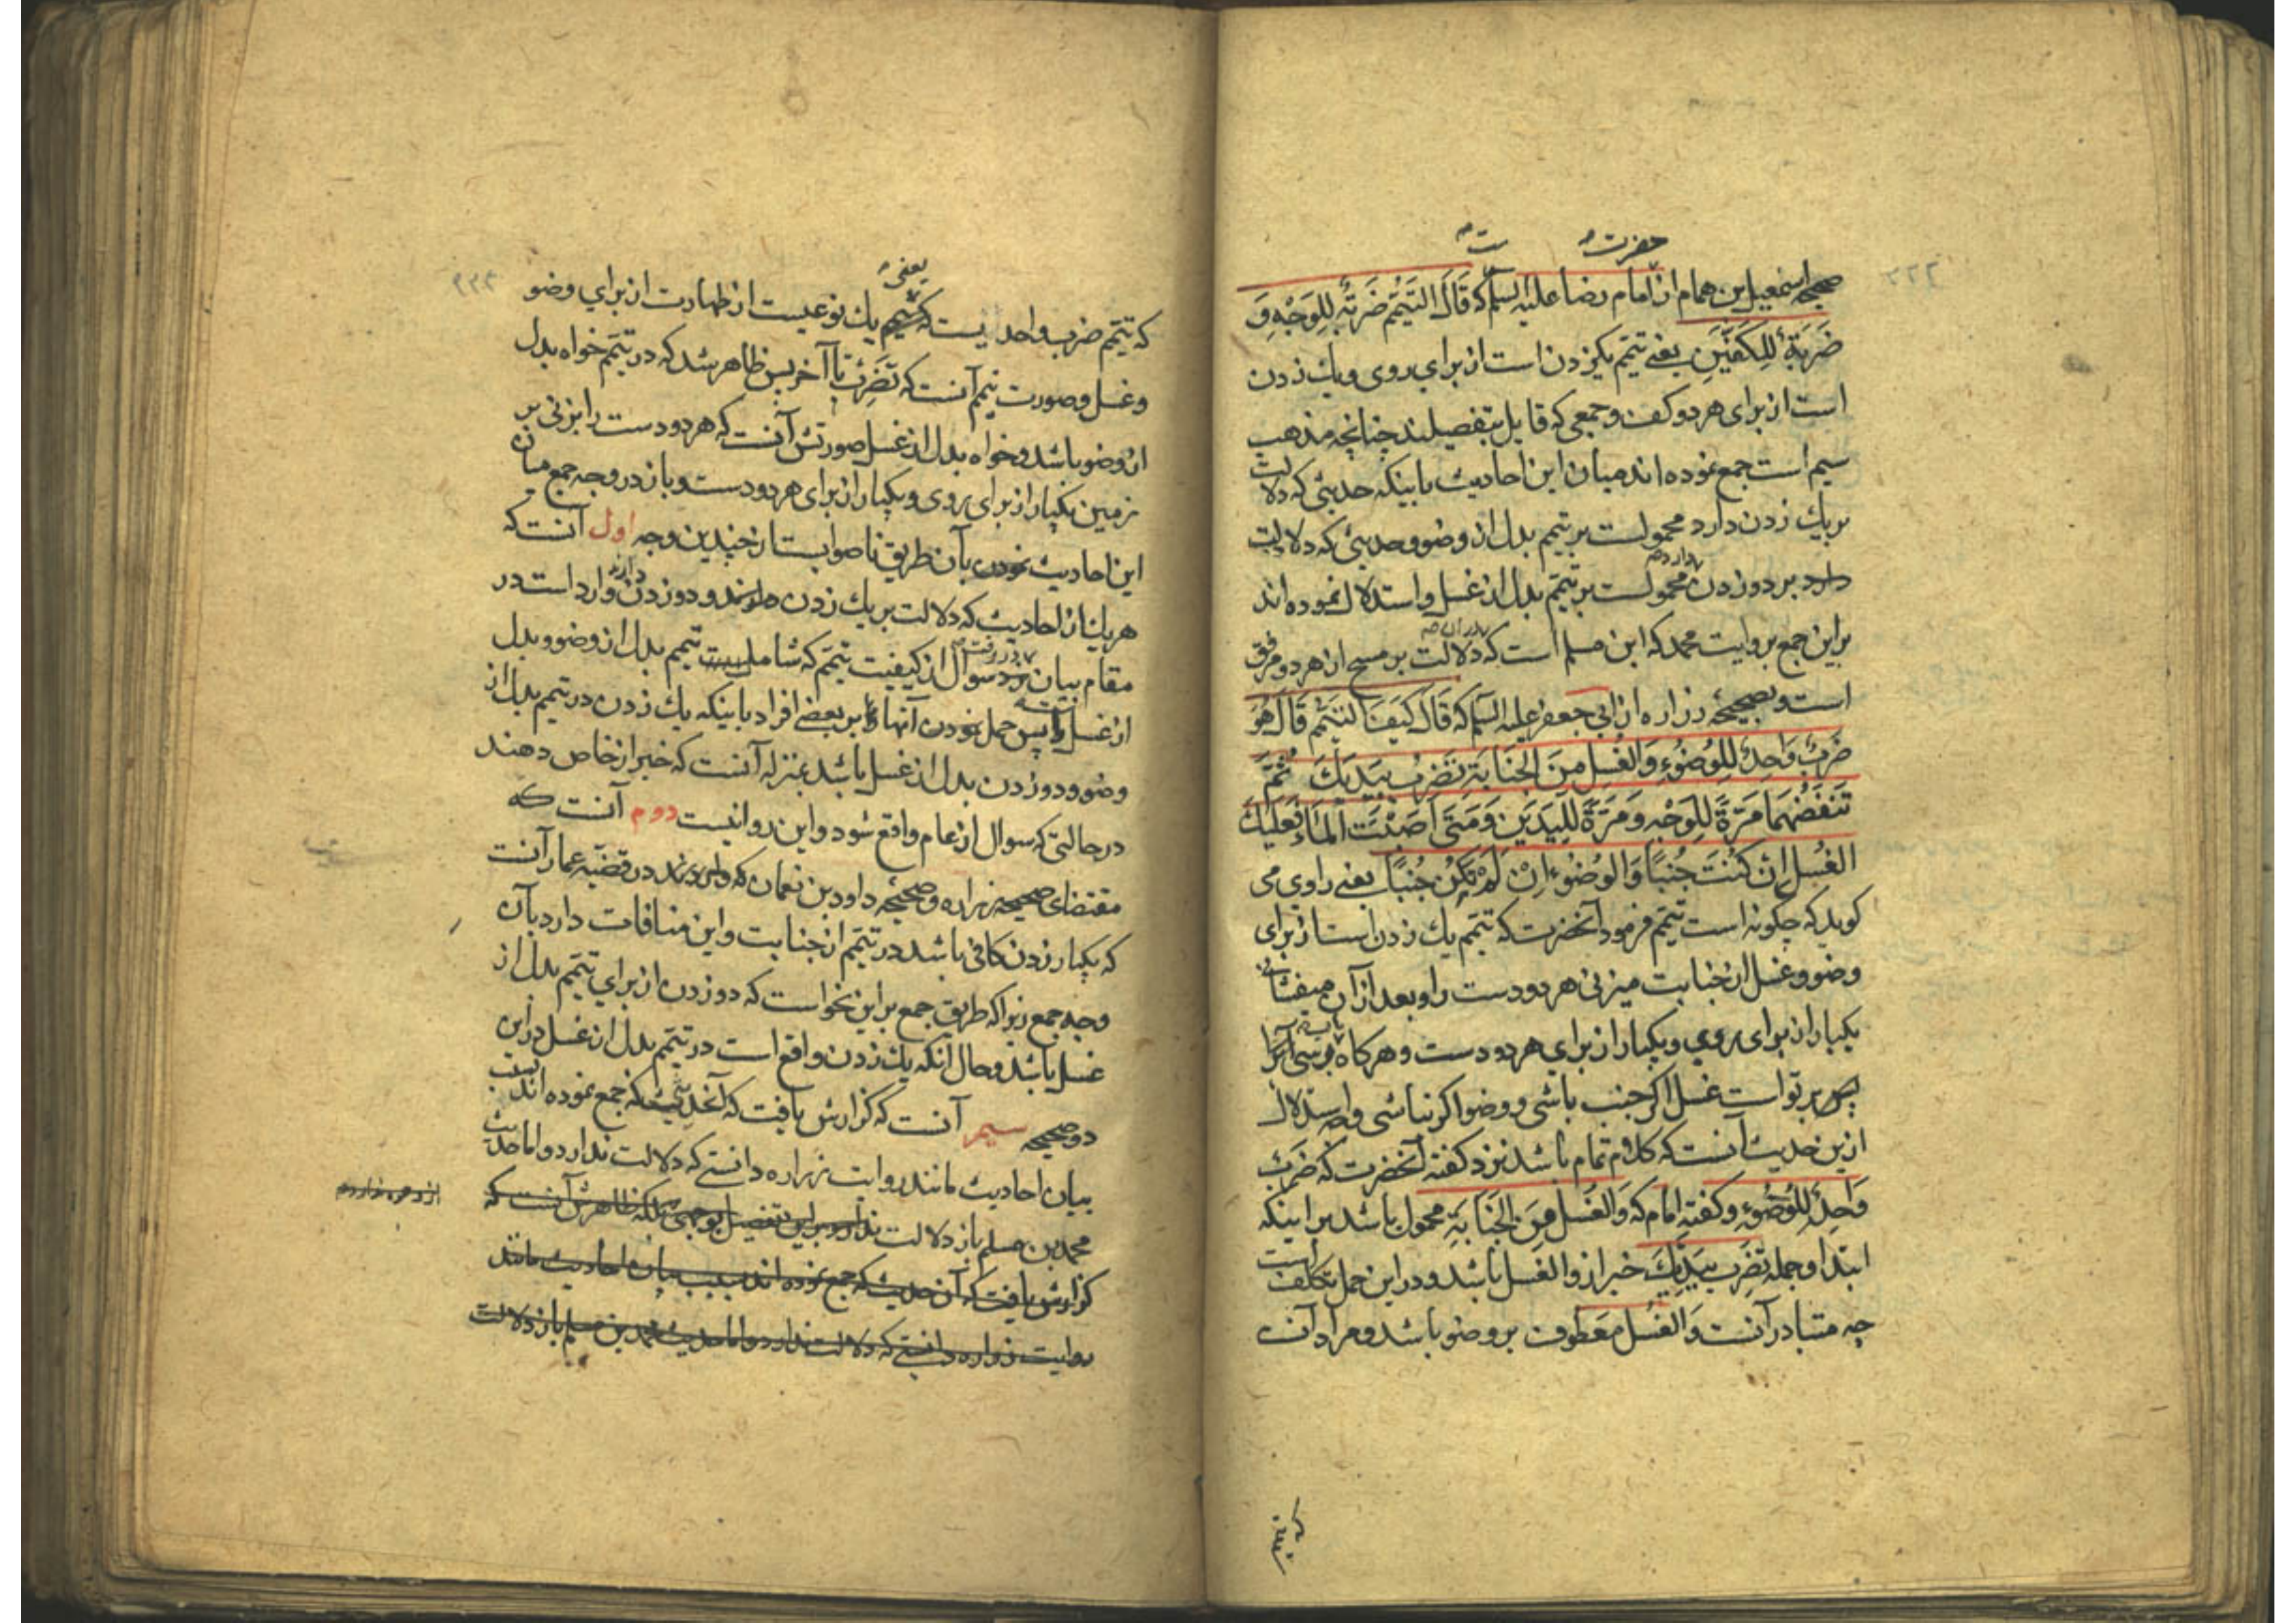 حضرت ست
صحیحه اسمعیل بن همام از امام رضا علیه السلم که قَالَ التَیَمُّم ضَربَةٌ لِلوَجْهِ وَ
ضَربَةٌ لِلکَفَّینِ یعنے تیمم یکزدن است از برای روی و یك زدن
است از برای هر دو کف و جمعی که قایل بتفصیلند چنانچه مذهب
سیم است جمع نموده اند میان این احادیث باینکه حدیثی که دلالت
بر یك زدن دارد محمولست بر تیمم بدل از وضو و حدیثی که دلالت
دارد بر دو زدن محمولست بر تیمّم بدل از غسل و استدلال نموده اند
بر این جمع بروایت محمد که ابن مسلم است که دلالت بر مسح از هر دو مرفق
است و بصحیحۀ زراره از ابی جعفر علیه السلم که قَالَ کَیفَ التَیَمُّم قَالَ هُوَ
ضَربٌ وَاحِدٌ لِلوُضُوءِ وَالغُسل مِنَ الجَنَابَةِ تَضرِبُ بِیَدَیكَ ثُمَّ
تَنفُضُهُمَا مَرَّةً لِلوَجْهِ وَمَرَّةً لِلیَدَینِ وَمَتَی اَصَبْتَ المَاءَ فَعَلَیكَ
الغُسل اِن کُنتَ جُنبًا وَالوُضُوء اِنْ لَمْ تَکُنْ جُنبًا یعنے راوی می
کوید که چکونه است تیمّم فرمود آنحضرت که تیمّم یك زدن است از برای
وضو و غسل از جنابت میزنی هر دو دست را و بعد از آن میفشانی
یکبار از برای روی و یکبار از برای هر دو دست و هرکاه برسی آب را
پس بر تو است غسل اکر جنب باشی و وضو اکر نباشی و استدلال
ازین حدیث آنست که کلام تمام باشد نزد کفته آنحضرت که ضَربٌ
وَاحِدٌ لِلوُضُوءِ و کفته امام که وَالغُسل مِنَ الجَنَابَةِ محمول باشد بر اینکه
ابتدا و جمله تَضرِب بِیَدَیكَ خبر از والغسل باشد و در این حمل تکلف است
چه متبادر آنست وَالغُسل معطوف بر وضو باشد و مراد آنست
یعنی
که تیمّم ضرب واحد یست که تیمم یك نوعیست از طهارت از برای وضو
و غسل و صورت تیمم آنست که تضرب تا آخر پس ظاهر شد که در تیمّم خواه بدل
از وضو باشد و خواه بدل از غسل صورتش آنست که هر دو دست را بزنی بر
زمین یکبار از برای روی و یکبار از برای هر دو دست و باز در وجه جمع میان
این احادیث نمودن بآن طریق ناصوابست از چندین وجه اول آنست که
هر یك از احادیث که دلالت بر یك زدن و دو زدن دارند وارد است در
مقام بیان سوال از کیفیت تیمّم که شاملست تیمم بدل از وضو و بدل
از غسل پس حمل نمودن آنها بر بعضے افراد باینکه یك زدن در تیمم بدل از
وضو و دو زدن بدل از غسل باشد بمنزله آنست که خبر از خاص دهند
در حالتی که سوال از عام واقع شود و این روا نیست دوم آنست که
مقتضای صحیحه زراره و صحیحه داود بن نعمان که در قضیّه عمار آنست
که یکبار زدن کافی باشد در تیمّم از جنابت و این منافات دارد بآن
وجه جمع زیرا که طریق جمع بر این نحو است که دو زدن از برای تیمّم بدل از
غسل باشد و حال آنکه یك زدن واقع است در تیمّم بدل از غسل در این
دو صحیحه سیم آنست که کزارش یافت که آنحدیث که جمع نموده اند بسبب
بیان احادیث مانند روایت زراره دانستے که دلالت ندارد و اما حدیث
محمد بن مسلم باز دلالت ندارد بر این تفصیل بوجهی بلکه ظاهرش آنست که
کزارش یافت که آن حدیث که جمع نموده اند بسبب بیان احادیث مانند
روایت زراره دانستے که دلالت ندارد و اما حدیث محمد بن مسلم باز دلالت